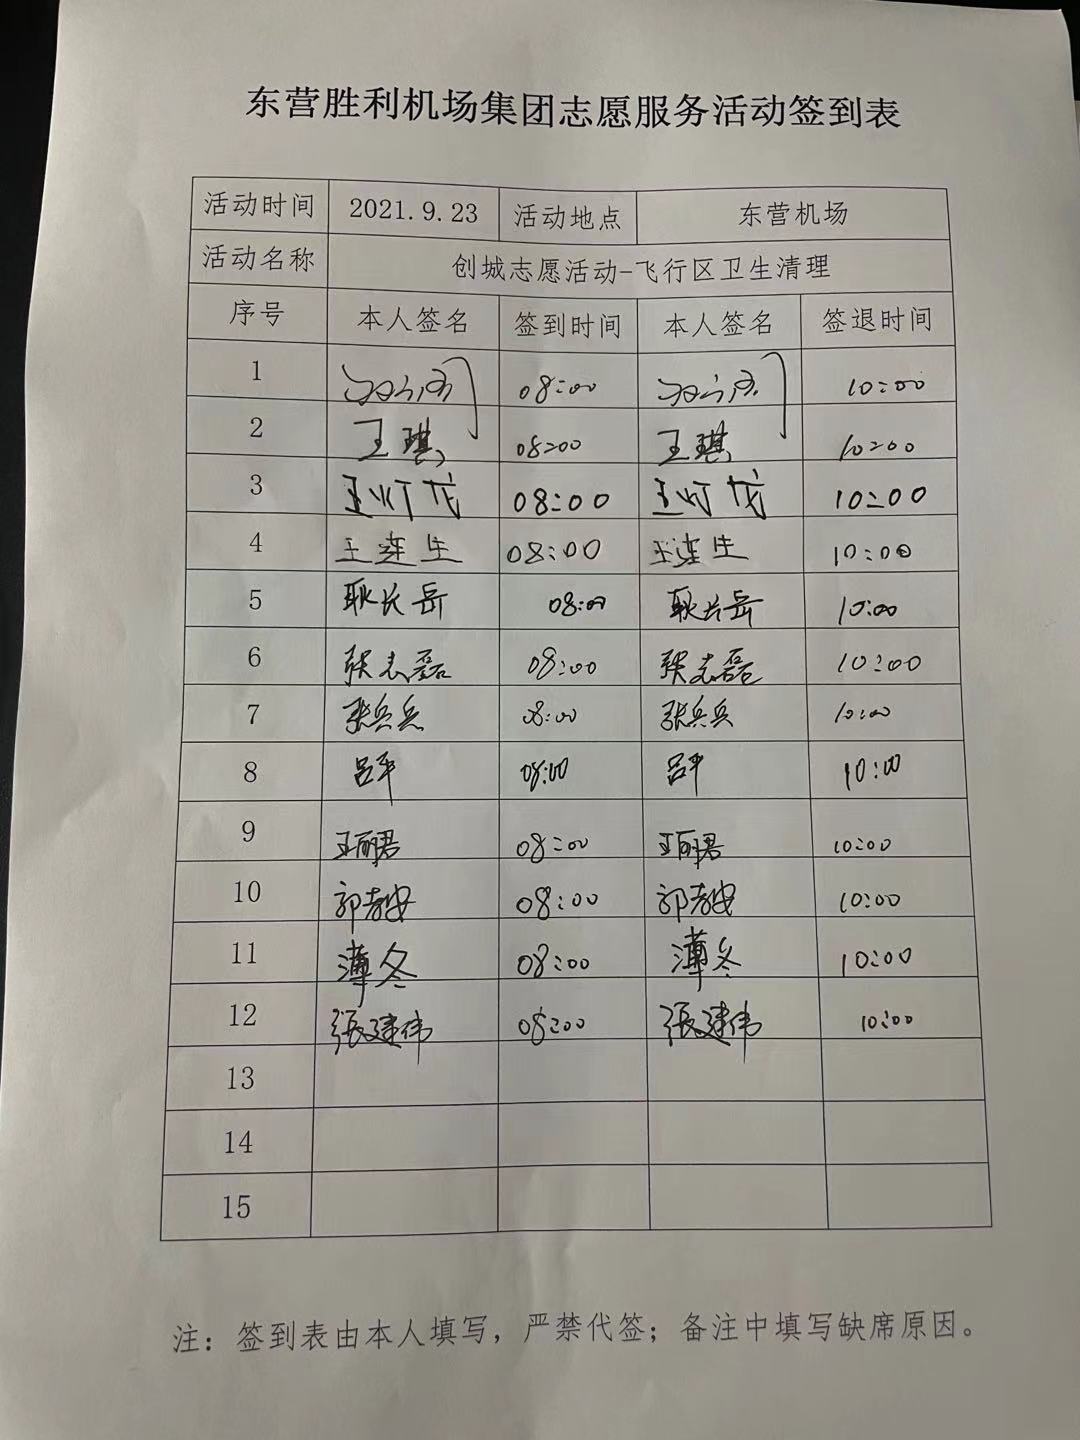 东营胜利机场集团志愿服务活动签到表
活动时间 2021.9.23 活动地点 东营机场
活动名称 创城志愿活动-飞行区卫生清理
序号 本人签名 签到时间 本人签名 签退时间
1 08:00 10:00
2 王琪 08:00 王琪 10:00
3 王灯茂 08:00 王灯茂 10:00
4 王连生 08:00 王连生 10:00
5 耿长岳 08:00 耿长岳 10:00
6 张志磊 08:00 张志磊 10:00
7 张兵兵 08:00 张兵兵 10:00
8 吕平 08:00 吕平 10:00
9 王丽君 08:00 王丽君 10:00
10 08:00 10:00
11 薄冬 08:00 薄冬 10:00
12 張建伟 08:00 張建伟 10:00
13
14
15
注：签到表由本人填写，严禁代签；备注中填写缺席原因。